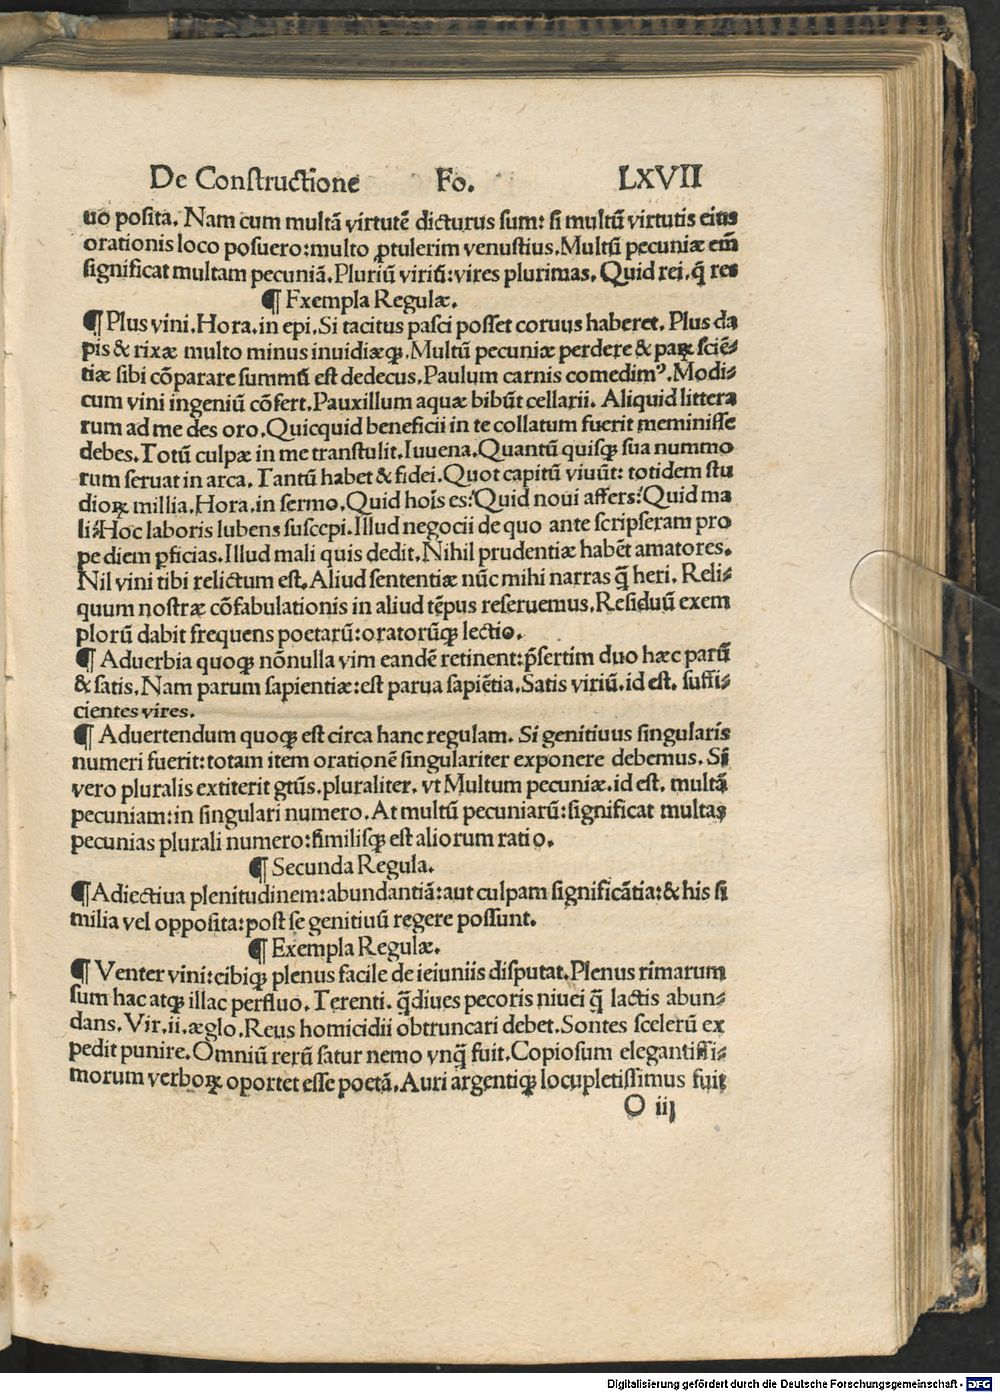 De Conſtructione Fo. LXVII
uo poſita. Nam cum multā virtutē dicturus ſum: ſi multū virtutis eius
orationis loco poſuero: multo ꝓtulerim venuſtius. Multū pecuniæ em̄
ſignificat multam pecuniā. Pluriū viriū: vires plurimas. Quid rei. q̄ res
¶ Fxempla Regulæ.
¶ Plus vini. Hora. in epi. Si tacitus paſci poſſet coruus haberet. Plus da
pis & rixæ multo minus inuidiæqꝫ. Multū pecuniæ perdere & paꝝ ſciē⸗
tiæ ſibi cōparare ſummū eſt dedecus. Paulum carnis comedimꝰ. Modi⸗
cum vini ingeniū cōfert. Pauxillum aquæ bibūt cellarii. Aliquid littera
rum ad me des oro. Quicquid beneficii in te collatum fuerit meminiſſe
debes. Totū culpæ in me tranſtulit. Iuuena. Quantū quiſqꝫ ſua nummo
rum ſeruat in arca. Tantū habet & fidei. Quot capitū viuūt: totidem ſtu
dioꝝ millia. Hora. in ſermo. Quid hoīs es? Quid noui affers? Quid ma
li? Hoc laboris lubens ſuſcepi. Illud negocii de quo ante ſcripſeram pro
pe diem ꝑficias. Illud mali quis dedit. Nihil prudentiæ habēt amatores.
Nil vini tibi relictum eſt. Aliud ſententiæ nūc mihi narras q̄ heri. Reli⸗
quum noſtræ cōfabulationis in aliud tēpus reſeruemus. Reſiduū exem
plorū dabit frequens poetarū: oratorūqꝫ lectio.
¶ Aduerbia quoqꝫ nōnulla vim eandē retinent: p̄ſertim duo hæc parū
& ſatis. Nam parum ſapientiæ: eſt parua ſapiētia. Satis viriū. id eſt. ſuffi⸗
cientes vires.
¶ Aduertendum quoqꝫ eſt circa hanc regulam. Si genitiuus ſingularis
numeri fuerit: totam item orationē ſingulariter exponere debemus. Si
vero pluralis extiterit gtūs. pluraliter. vt Multum pecuniæ. id eſt. multā
pecuniam: in ſingulari numero. At multū pecuniarū: ſignificat multas
pecunias plurali numero: ſimiliſqꝫ eſt aliorum ratio.
¶ Secunda Regula.
¶ Adiectiua plenitudinem: abundantiā: aut culpam ſignificātia: & his ſi
milia vel oppoſita: poſt ſe genitiuū regere poſſunt.
¶ Exempla Regulæ.
¶ Venter vini: cibiqꝫ plenus facile de ieiuniis diſputat. Plenus rimarum
ſum hac atqꝫ illac perfluo. Terenti. q̄ diues pecoris niuei q̄ lactis abun⸗
dans. Vir. ii. æglo. Reus homicidii obtruncari debet. Sontes ſcelerū ex
pedit punire. Omniū rerū ſatur nemo vnq̄ fuit. Copioſum elegantiſſi⸗
morum verboꝝ oportet eſſe poetā. Auri argentiqꝫ locupletiſſimus fuit
O iij
Digitalisierung gefördert durch die Deutsche Forschungsgemeinschaft - DFG